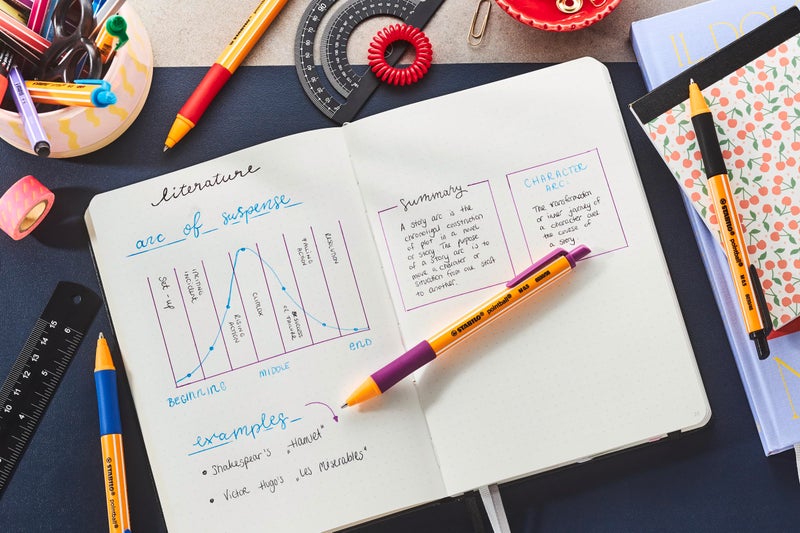 literature
arc of suspense
Set-up
inciting incident
Rising Action
Climax
Falling Action
Resolution
Beginning
Middle
End
examples
Shakespear's „Hamlet"
Victor Hugo's „Les Miserables"
Summary
A story arc is the
chronological construction
of plot in a novel
or story. The purpose
of a story arc is to
move a character or
situation from one state
to another.
CHARACTER
ARC:
The transformation
or inner journey of
a character over
the course of
a story.
STABILO pointball 0.5
STABILO pointball 0.5
STABILO pointball
15 14 13 12 11 10